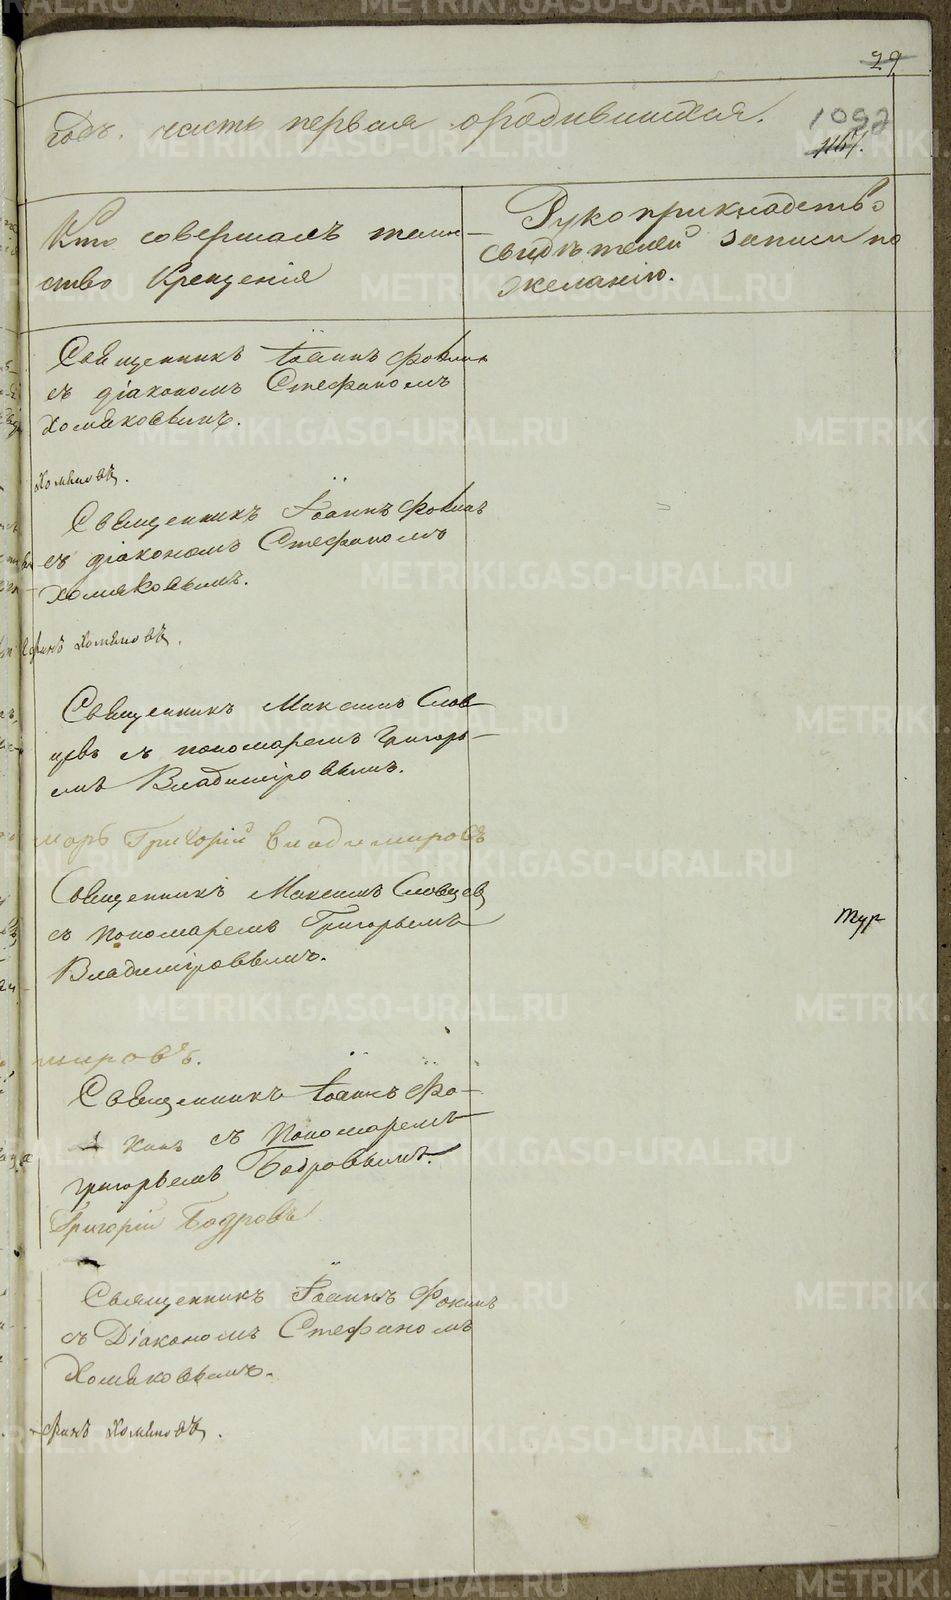 29
годъ. часть первая о родившихся.
1092
Кто совершалъ таин-
ство Крещенія
Рукоприкладство
свидѣтелей записи по
желанію.
Священникъ Іоаннъ Фокинъ
съ діакономъ Стефаномъ
Хомяковымъ.
Хомяковъ.
Священникъ Іоаннъ Фокинъ
съ діакономъ Стефаномъ
Хомяковымъ.
Хомяковъ.
Священникъ Максимъ Слов-
цевъ съ пономаремъ Григорь-
емъ Владиміровымъ.
марь Григорій Владимировъ
Священникъ Максимъ Словцевъ
съ пономаремъ Григорьемъ
Владиміровымъ.
Тур
мировъ.
Священникъ Іоаннъ Фо-
кинъ съ Пономаремъ
Григорьемъ Бодровымъ.
Григорій Бодровъ
Священникъ Іоаннъ Фокинъ
съ Діакономъ Стефаномъ
Хомяковымъ.
фанъ Хомяковъ.
METRIKI.GASO-URAL.RU